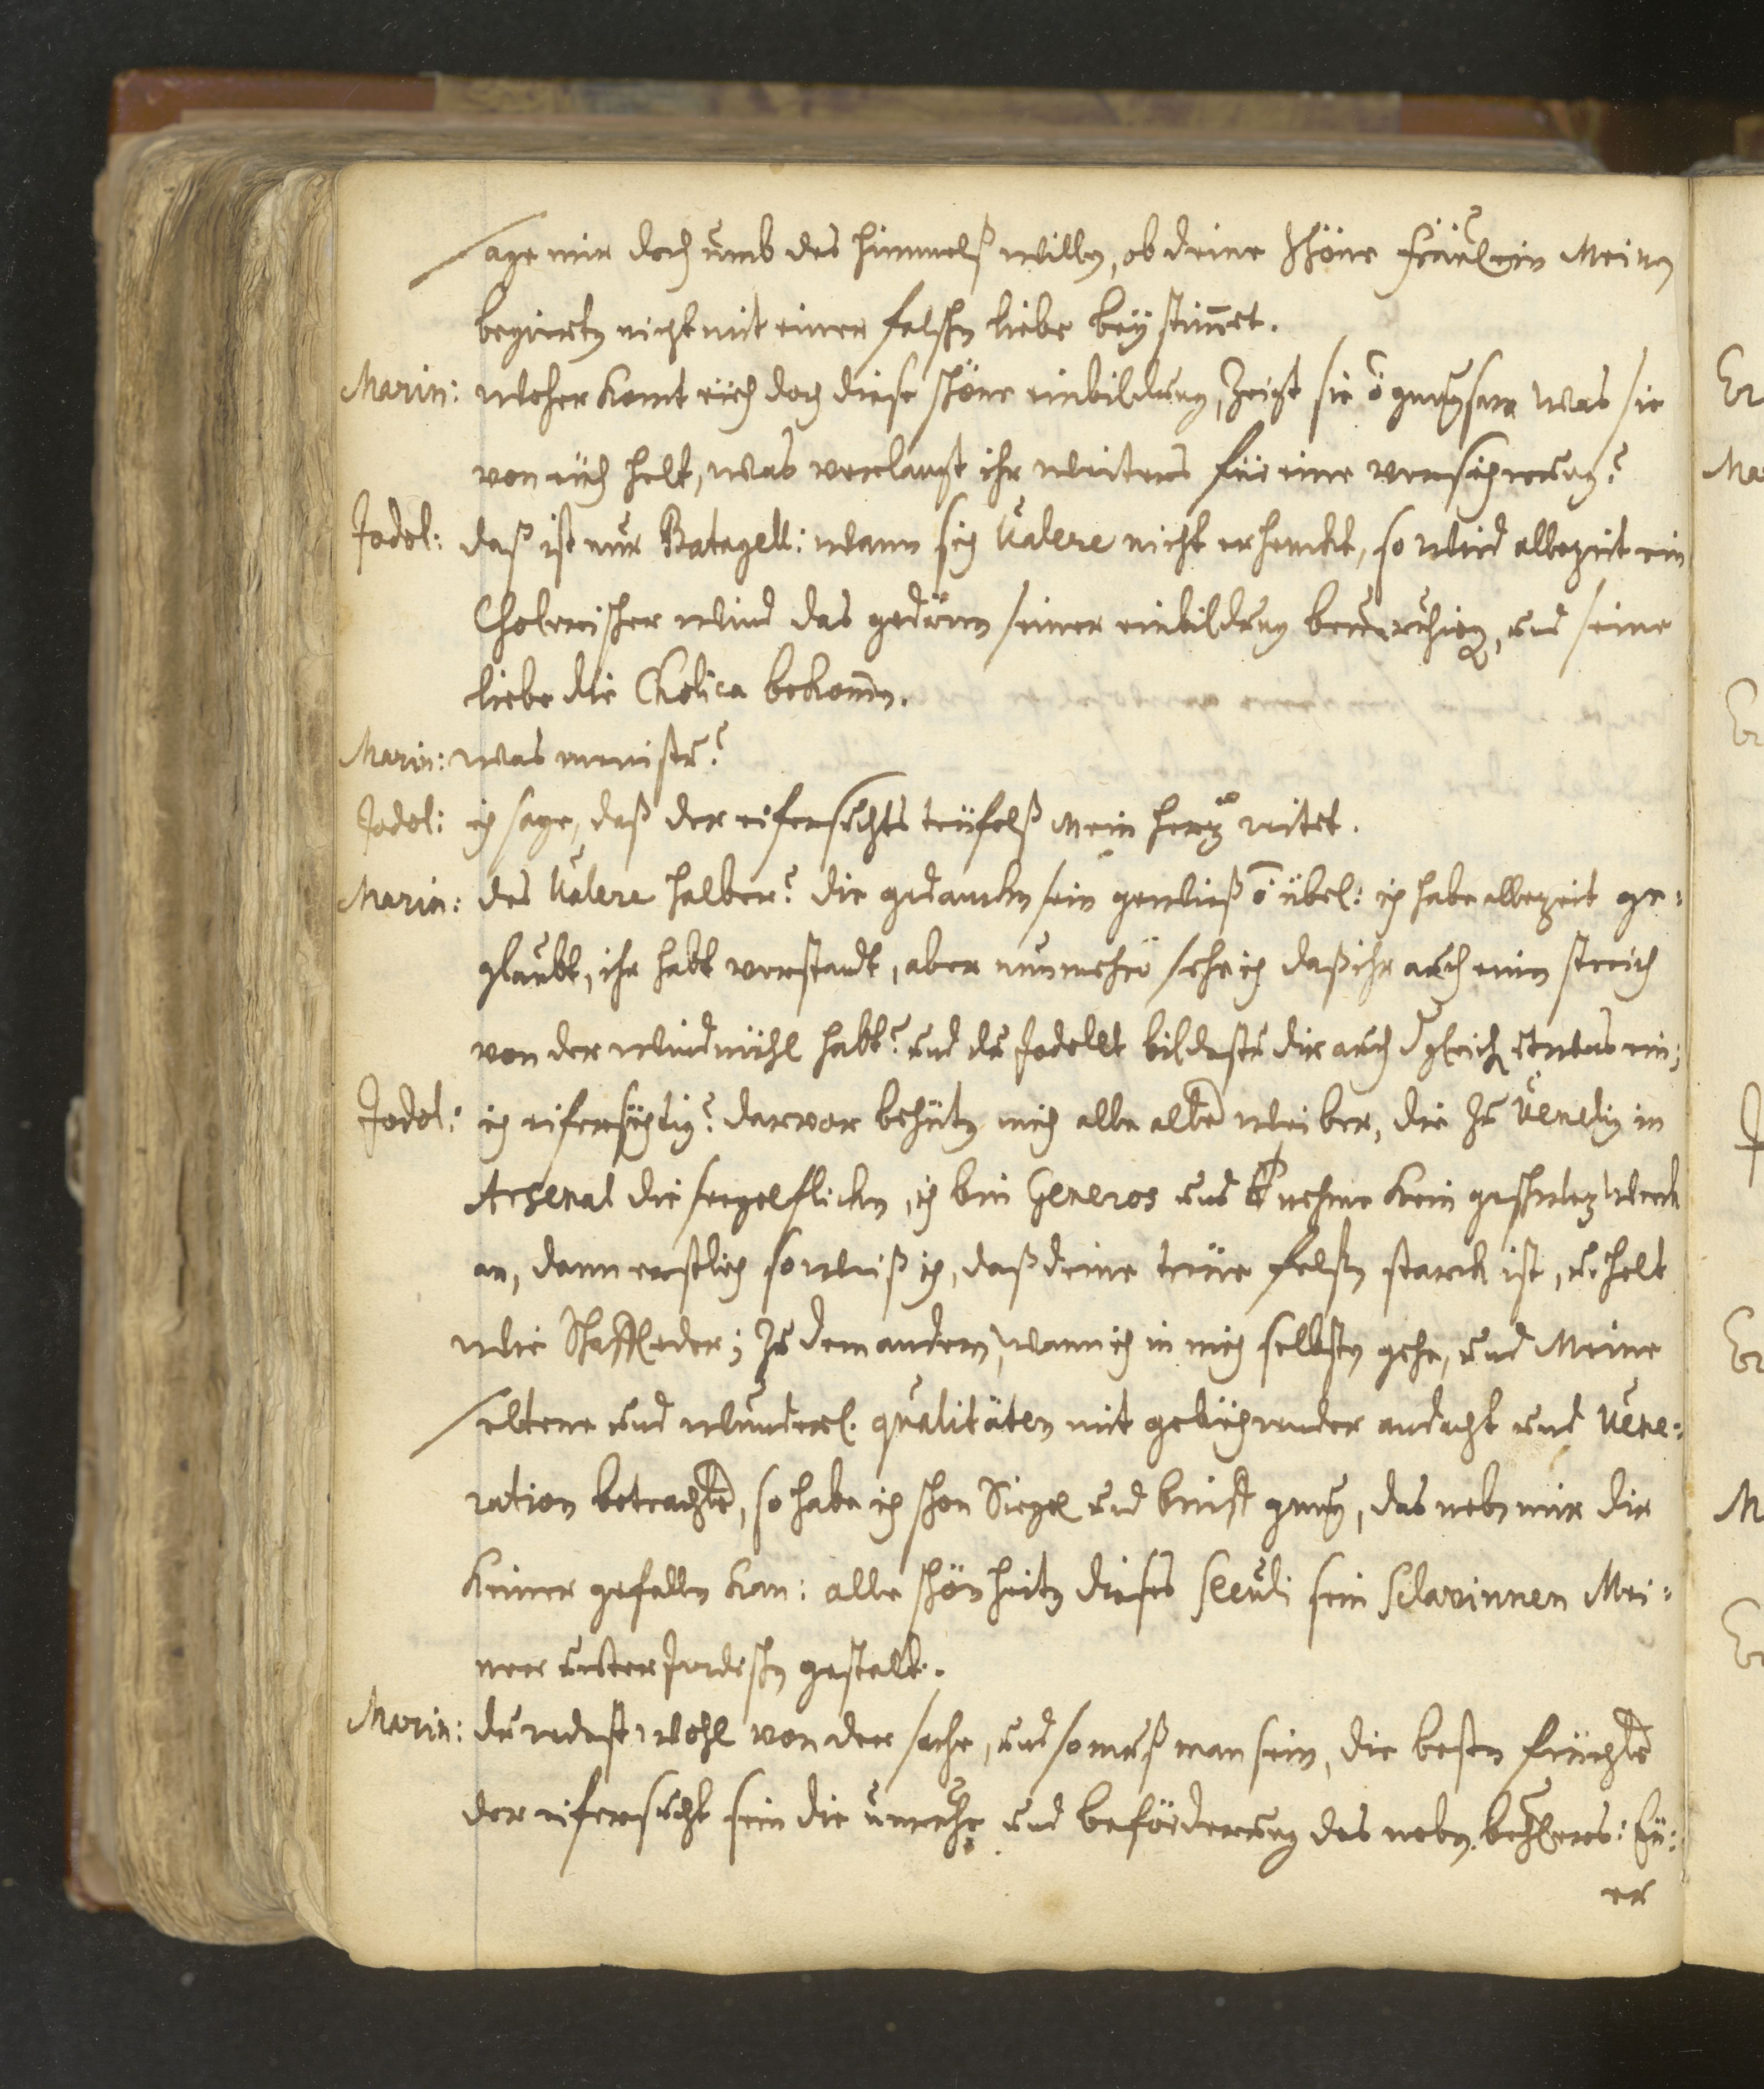 sage mir doch umb des himmelß willen, ob deine schöne fräulein Meinen
begierten nicht mit einer falschen liebe beystim̅et.
Marin: woher komt eüch doch diese schöne einbildung, zeigt sie ō genugsam was sie
von eüch helt, was verlangt ihr weiters für eine versicherung?
Jodol: daß ist nur Batagell: wann sich Valere nicht erhenckt, so wird allezeit ein
Cholerischer wind das gedärm seiner einbildung beunruhigen, und seine
liebe die Cholica bekom̅en.
Marin: was meinstu?
Jodol: ich sage, daß der eifersuchts teüfelß Mein hertz reitet.
Marin: des Valere halber? die gedancken sein gewieß ō übel: ich habe allezeit ge:
glaubt, ihr habt verstandt, aber nunmehro sehe ich daß ihr auch einen streich
von der windmühl habt? und du Jodellet bildestu dir auch dgleichen etwas ein;
Jodol: ich eifersichtig? darvor behüten mich alle alte weiber, die zu Venedig in
Arsenal die seegel flicken, ich bin Generos und nehme kein geschmetzwerck
an, dann erstlich so weiß ich, daß deine treüe felsen starck ist, u: helt
wie Schaffleder; zu dem andern, wann ich in mich selbsten gehe, und Meine
seltene und wunderl. qualitäten mit gebüchrender andacht und Vene:
ration betrachte, so habe ich schon Siegel und brieff genug, das neben mir dir
keiner gefallen kan: alle schönheiten dieses Seculi sein Sclavinnen Mei:
ner unter Jrdischen gestalt.
Marin: du redest wohl von der sache, und so muß man sein, die besten früchte
der eifersucht sein die unruhe und beförderung des neben buhlers: Eü:
er